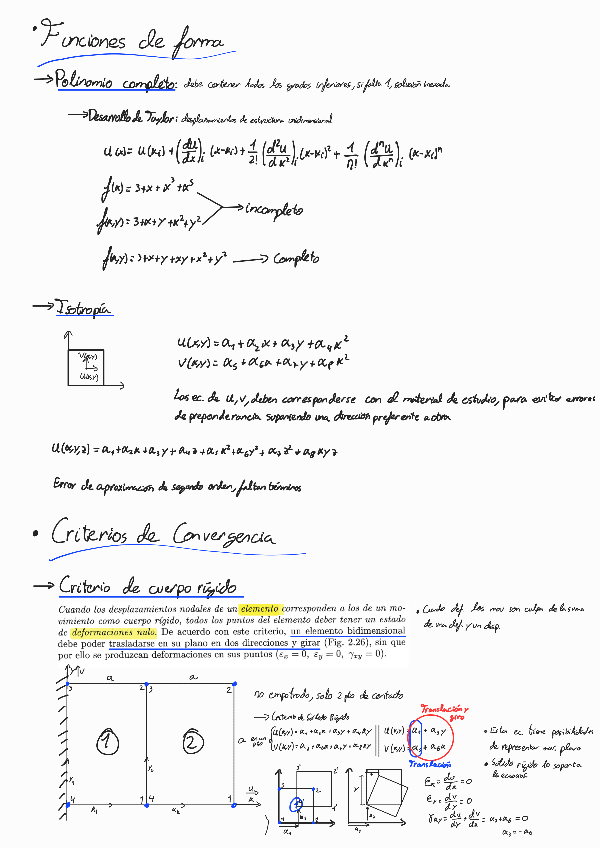 • Funciones de forma
→ Polinomio completo: debe contener todos los grados inferiores, si falta 1, solución inexacta
→ Desarrollo de Taylor: desplazamientos de estructura unidimensional
u(x) = u(xi) + (du/dx)i (x-xi) + 1/2! (d²u/dx²)i (x-xi)² + 1/n! (dⁿu/dxⁿ)i (x-xi)ⁿ
f(x) = 3+x+x³+x⁵
→ incompleto
f(x,y) = 3+x+y+x²+y²
f(x,y) = 3+x+y+xy+x²+y² → Completo
→ Isotropía
V(x,y)
U(x,y)
U(x,y) = a₁+a₂x+a₃y+a₄x²
V(x,y) = a₅+a₆x+a₇y+a₈x²
Las ec. de u,v, deben corresponderse con el material de estudio, para evitar errores
de preponderancia suponiendo una dirección preferente a otra
U(x,y,z) = a₁+a₂x+a₃y+a₄z+a₅x²+a₆y²+a₇z²+a₈xyz
Error de aproximación de segundo orden, faltan términos
• Criterios de Convergencia
→ Criterio de cuerpo rígido
Cuando los desplazamientos nodales de un elemento corresponden a los de un mo-
vimiento como cuerpo rígido, todos los puntos del elemento deben tener un estado
de deformaciones nulo. De acuerdo con este criterio, un elemento bidimensional
debe poder trasladarse en su plano en dos direcciones y girar (Fig. 2.26), sin que
por ello se produzcan deformaciones en sus puntos (εx = 0, εy = 0, γxy = 0).
• Cuando def. los mov son culpa de la suma
de una def. y un desp.
y,v
a a
3 2 3 2
1 2
4 1 4 1
x₁ x₂
u
x
no empotrado, solo 2 pto de contacto
→ Criterio de Sólido Rígido
U(x,y) = a₁+a₂x+a₃y+a₄xy
V(x,y) = a₅+a₆x+a₇y+a₈xy
Translación y
giro
U(x,y) = a₁+a₃y
V(x,y) = a₅+a₆x
Translación
• Esta ec tiene posibilidades
de representar mov. plano
• Sólido rígido lo soporta
εx = du/dx = 0
εy = dv/dy = 0
γxy = du/dy + dv/dx = a₃+a₆ = 0
a₃ = -a₆